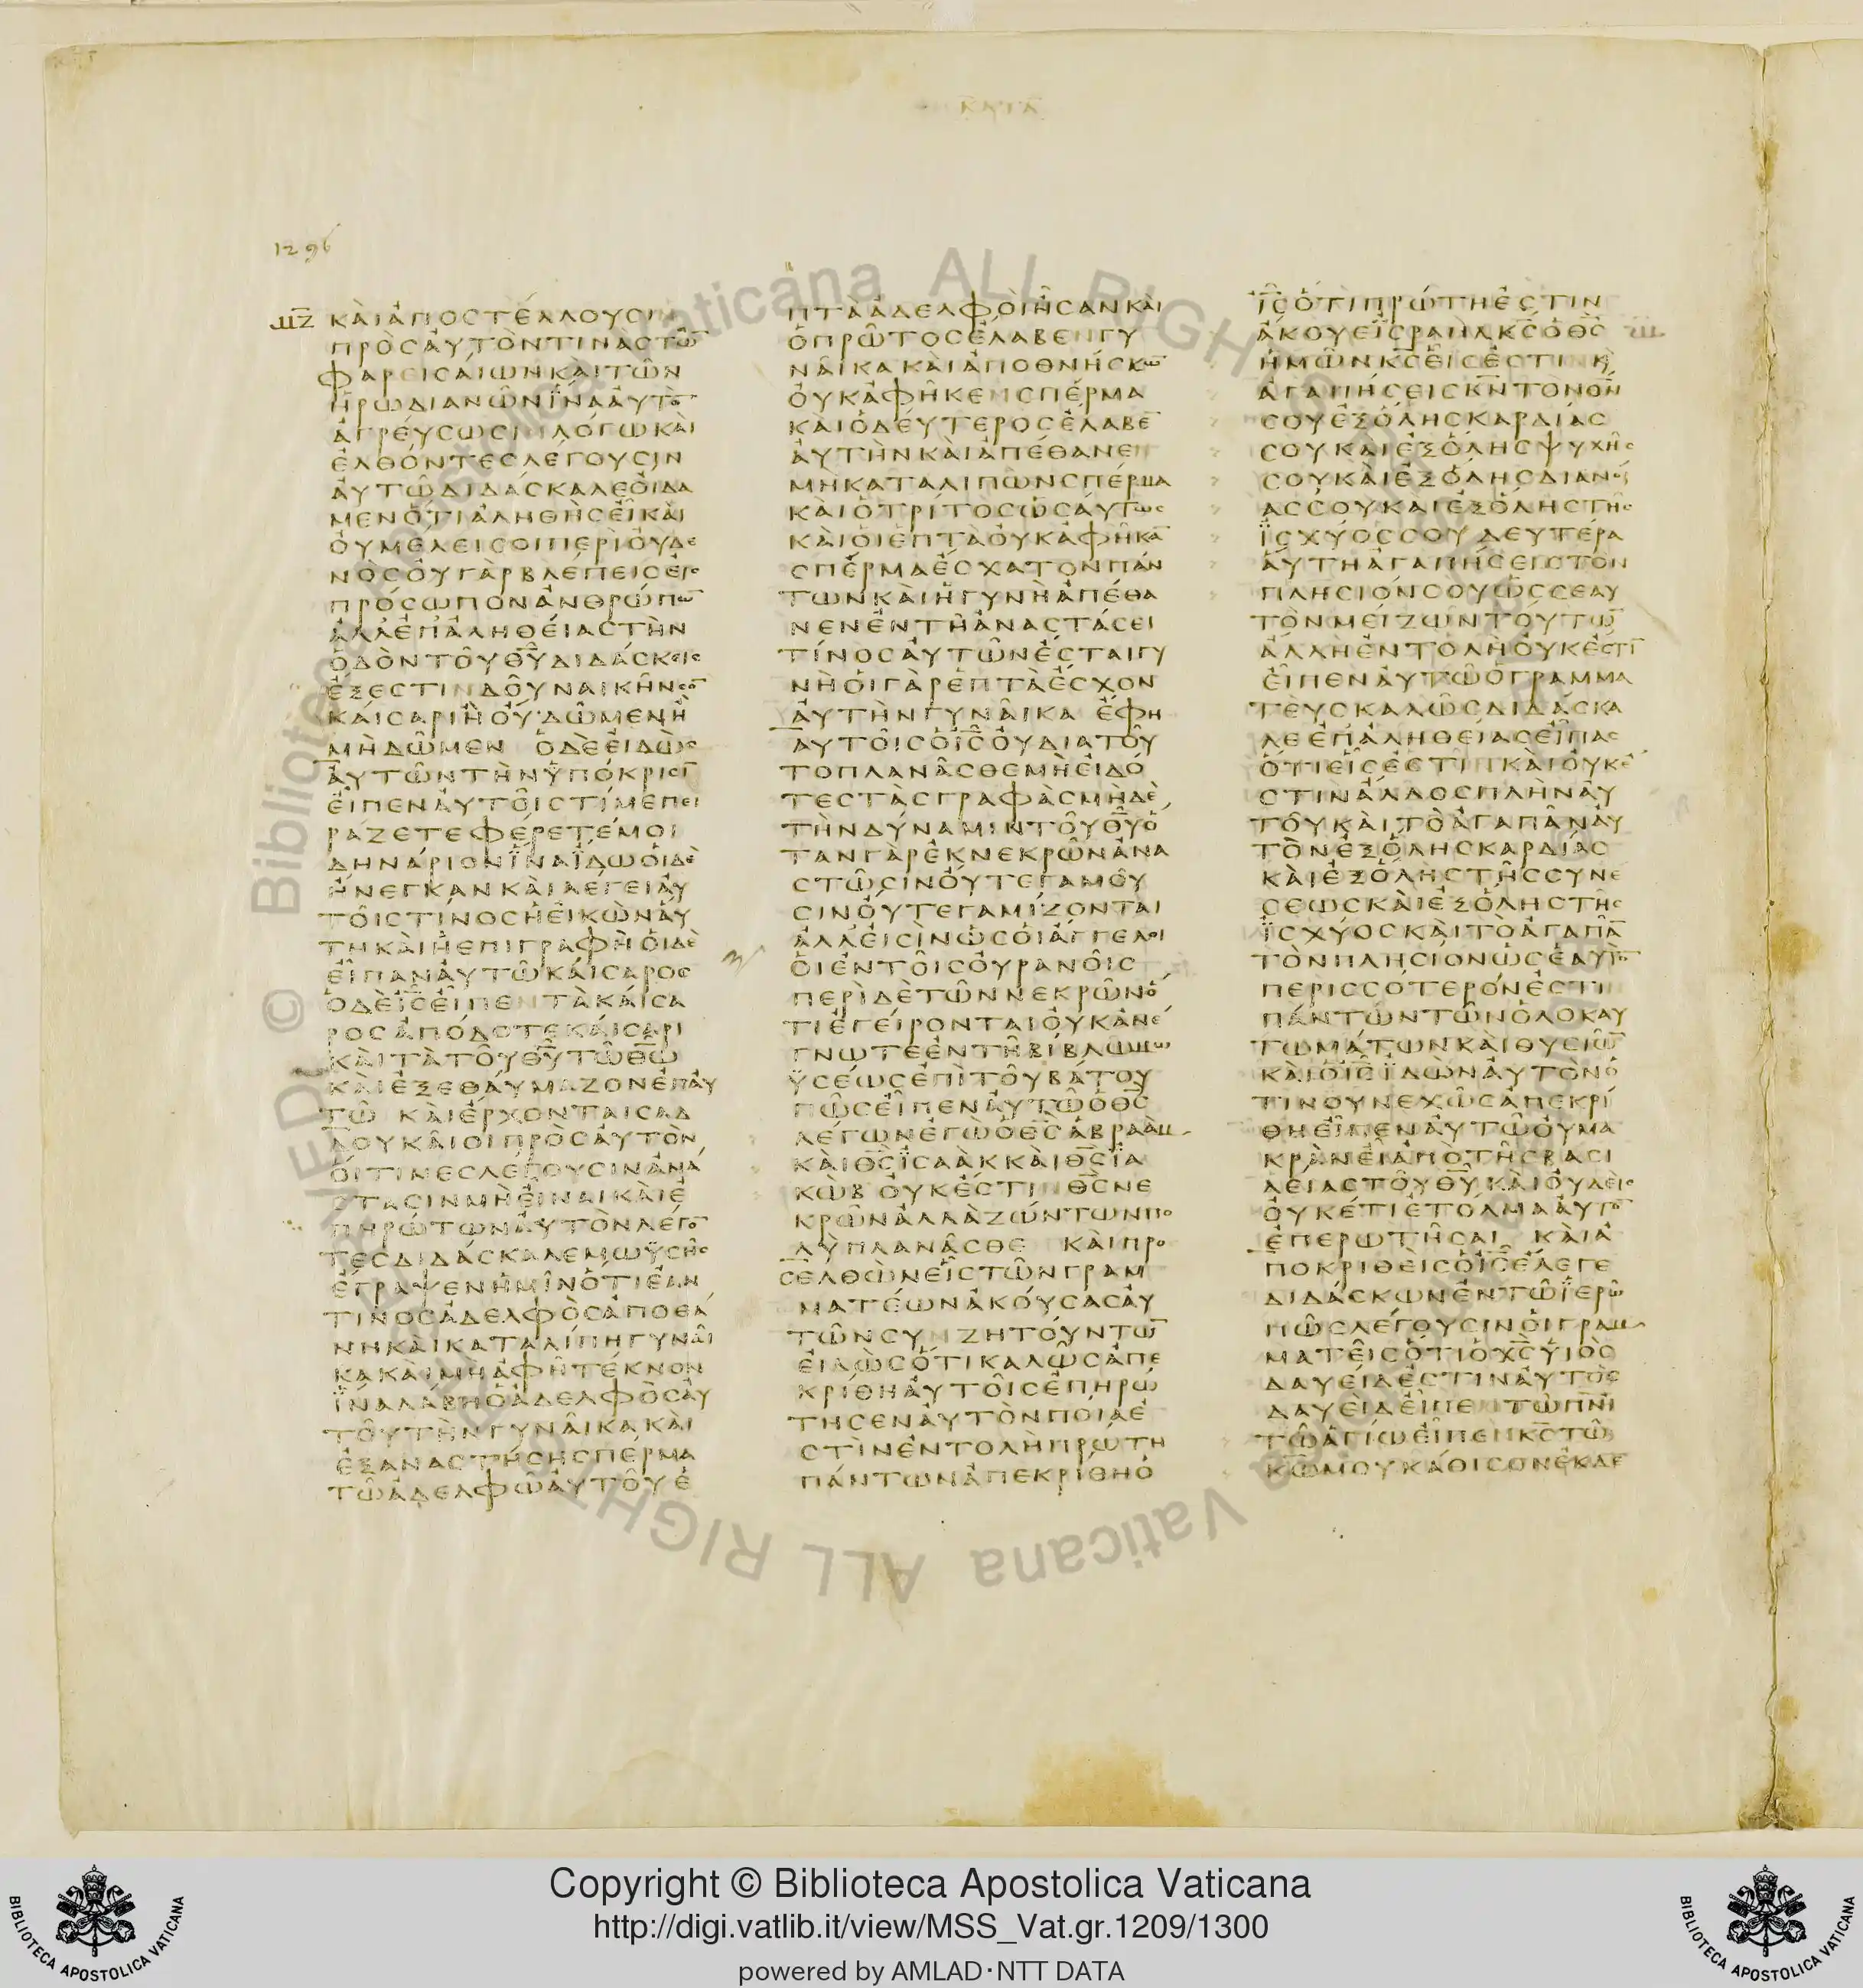 ΚΑΤΑ
1296
ΜΖ ΚΑΙΑΠΟCΤΕΛΛΟΥCΙΝ
ΠΡΟCΑΥΤΟΝΤΙΝΑCΤΩ̅
ΦΑΡΕΙCΑΙΩΝΚΑΙΤΩΝ
ΗΡΩΔΙΑΝΩΝΪΝΑΑΥΤΟ̅
ΑΓΡΕΥCΩCΙΝΛΟΓΩΚΑΙ
ΕΛΘΟΝΤΕCΛΕΓΟΥCΙΝ
ΑΥΤΩΔΙΔΑCΚΑΛΕΟΙΔΑ
ΜΕΝΟΤΙΑΛΗΘΗCΕΙΚΑΙ
ΟΥΜΕΛΕΙCΟΙΠΕΡΙΟΥΔΕ
ΝΟCΟΥΓΑΡΒΛΕΠΕΙCΕΙC
ΠΡΟCΩΠΟΝΑΝΘΡΩΠΩ̅
ΑΛΛΕΠΑΛΗΘΕΙΑCΤΗΝ
ΟΔΟΝΤΟΥΘ̅Υ̅ΔΙΔΑCΚΕΙC
ΕΞΕCΤΙΝΔΟΥΝΑΙΚΗΝCΟ̅
ΚΑΙCΑΡΙΗΟΥΔΩΜΕΝΗ
ΜΗΔΩΜΕΝ ΟΔΕΕΙΔΩC
ΑΥΤΩΝΤΗΝΫΠΟΚΡΙCΙ̅
ΕΙΠΕΝΑΥΤΟΙCΤΙΜΕΠΕΙ
ΡΑΖΕΤΕΦΕΡΕΤΕΜΟΙ
ΔΗΝΑΡΙΟΝΪΝΑΪΔΩΟΙΔΕ
ΗΝΕΓΚΑΝΚΑΙΛΕΓΕΙΑΥ
ΤΟΙCΤΙΝΟCΗΕΙΚΩΝΑΥ
ΤΗΚΑΙΗΕΠΙΓΡΑΦΗΟΙΔΕ
ΕΙΠΑΝΑΥΤΩΚΑΙCΑΡΟC
ΟΔΕΙ̅C̅ΕΙΠΕΝΤΑΚΑΙCΑ
ΡΟCΑΠΟΔΟΤΕΚΑΙCΑΡΙ
ΚΑΙΤΑΤΟΥΘ̅Υ̅ΤΩΘ̅Ω̅
ΚΑΙΕΞΕΘΑΥΜΑΖΟΝΕΠΑΥ
ΤΩ ΚΑΙΕΡΧΟΝΤΑΙCΑΔ
ΔΟΥΚΑΙΟΙΠΡΟCΑΥΤΟΝ
ΟΙΤΙΝΕCΛΕΓΟΥCΙΝΑΝΑ
CΤΑCΙΝΜΗΕΙΝΑΙΚΑΙΕ
ΠΗΡΩΤΩΝΑΥΤΟΝΛΕΓΟ̅
ΤΕCΔΙΔΑCΚΑΛΕΜΩΫCΗC
ΕΓΡΑΨΕΝΗΜΙΝΟΤΙΕΑΝ
ΤΙΝΟCΑΔΕΛΦΟCΑΠΟΘΑ
ΝΗΚΑΙΚΑΤΑΛΙΠΗΓΥΝΑΙ
ΚΑΚΑΙΜΗΑΦΗΤΕΚΝΟΝ
ΪΝΑΛΑΒΗΟΑΔΕΛΦΟCΑΥ
ΤΟΥΤΗΝΓΥΝΑΙΚΑΚΑΙ
ΕΞΑΝΑCΤΗCΗCΠΕΡΜΑ
ΤΩΑΔΕΛΦΩΑΥΤΟΥΕ
ΠΤΑΑΔΕΛΦΟΙΗCΑΝΚΑΙ
ΟΠΡΩΤΟCΕΛΑΒΕΝΓΥ
ΝΑΙΚΑΚΑΙΑΠΟΘΝΗCΚΩ̅
ΟΥΚΑΦΗΚΕΝCΠΕΡΜΑ
ΚΑΙΟΔΕΥΤΕΡΟCΕΛΑΒΕ̅
ΑΥΤΗΝΚΑΙΑΠΕΘΑΝΕΝ
ΜΗΚΑΤΑΛΙΠΩΝCΠΕΡΜΑ
ΚΑΙΟΤΡΙΤΟCΩCΑΥΤΩC
ΚΑΙΟΙΕΠΤΑΟΥΚΑΦΗΚΑ̅
CΠΕΡΜΑΕCΧΑΤΟΝΠΑΝ
ΤΩΝΚΑΙΗΓΥΝΗΑΠΕΘΑ
ΝΕΝΕΝΤΗΑΝΑCΤΑCΕΙ
ΤΙΝΟCΑΥΤΩΝΕCΤΑΙΓΥ
ΝΗΟΙΓΑΡΕΠΤΑΕCΧΟΝ
ΑΥΤΗΝΓΥΝΑΙΚΑ ΕΦΗ
ΑΥΤΟΙCΟΙ̅C̅ΟΥΔΙΑΤΟΥ
ΤΟΠΛΑΝΑCΘΕΜΗΕΙΔΟ
ΤΕCΤΑCΓΡΑΦΑCΜΗΔΕ
ΤΗΝΔΥΝΑΜΙΝΤΟΥΘ̅Υ̅Ο
ΤΑΝΓΑΡΕΚΝΕΚΡΩΝΑΝΑ
CΤΩCΙΝΟΥΤΕΓΑΜΟΥ
CΙΝΟΥΤΕΓΑΜΙΖΟΝΤΑΙ
ΑΛΛΕΙCΙΝΩCΟΙΑΓΓΕΛΟΙ
ΟΙΕΝΤΟΙCΟΥΡΑΝΟΙC
ΠΕΡΙΔΕΤΩΝΝΕΚΡΩΝΟ
ΤΙΕΓΕΙΡΟΝΤΑΙΟΥΚΑΝΕ
ΓΝΩΤΕΕΝΤΗΒΙΒΛΩΜΩ
ΫCΕΩCΕΠΙΤΟΥΒΑΤΟΥ
ΠΩCΕΙΠΕΝΑΥΤΩΟΘ̅C̅
ΛΕΓΩΝΕΓΩΟΘ̅C̅ΑΒΡΑΑΜ
ΚΑΙΘ̅C̅ΪCΑΑΚΚΑΙΘ̅C̅ΪΑ
ΚΩΒ ΟΥΚΕCΤΙΝΘ̅C̅ΝΕ
ΚΡΩΝΑΛΛΑΖΩΝΤΩΝΠΟ
ΛΥΠΛΑΝΑCΘΕ ΚΑΙΠΡΟ
CΕΛΘΩΝΕΙCΤΩΝΓΡΑΜ
ΜΑΤΕΩΝΑΚΟΥCΑCΑΥ
ΤΩΝCΥΝΖΗΤΟΥΝΤΩ̅
ΕΙΔΩCΟΤΙΚΑΛΩCΑΠΕ
ΚΡΙΘΗΑΥΤΟΙCΕΠΗΡΩ
ΤΗCΕΝΑΥΤΟΝΠΟΙΑΕ
CΤΙΝΕΝΤΟΛΗΠΡΩΤΗ
ΠΑΝΤΩΝΑΠΕΚΡΙΘΗΟ
Ι̅C̅ΟΤΙΠΡΩΤΗΕCΤΙΝ
ΑΚΟΥΕΪCΡΑΗΛΚ̅C̅ΟΘ̅C̅
ΗΜΩΝΚ̅C̅ΕΙCΕCΤΙΝΚΑΙ
ΑΓΑΠΗCΕΙCΚ̅Ν̅ΤΟΝΘ̅Ν̅
CΟΥΕΞΟΛΗCΚΑΡΔΙΑC
CΟΥΚΑΙΕΞΟΛΗCΨΥΧΗC
CΟΥΚΑΙΕΞΟΛΗCΔΙΑΝΟΙ
ΑCCΟΥΚΑΙΕΞΟΛΗCΤΗC
ΪCΧΥΟCCΟΥ ΔΕΥΤΕΡΑ
ΑΥΤΗΑΓΑΠΗCΕΙCΤΟΝ
ΠΛΗCΙΟΝCΟΥΩCCΕΑΥ
ΤΟΝΜΕΙΖΩΝΤΟΥΤΩ̅
ΑΛΛΗΕΝΤΟΛΗΟΥΚΕCΤΙ̅
ΕΙΠΕΝΑΥΤΩΟΓΡΑΜΜΑ
ΤΕΥCΚΑΛΩCΔΙΔΑCΚΑ
ΛΕΕΠΑΛΗΘΕΙΑCΕΙΠΑC
ΟΤΙΕΙCΕCΤΙΝΚΑΙΟΥΚΕ
CΤΙΝΑΛΛΟCΠΛΗΝΑΥ
ΤΟΥΚΑΙΤΟΑΓΑΠΑΝΑΥ
ΤΟΝΕΞΟΛΗCΚΑΡΔΙΑC
ΚΑΙΕΞΟΛΗCΤΗCCΥΝΕ
CΕΩCΚΑΙΕΞΟΛΗCΤΗC
ΪCΧΥΟCΚΑΙΤΟΑΓΑΠΑ̅
ΤΟΝΠΛΗCΙΟΝΩCΕΑΥΤΟ̅
ΠΕΡΙCCΟΤΕΡΟΝΕCΤΙΝ
ΠΑΝΤΩΝΤΩΝΟΛΟΚΑΥ
ΤΩΜΑΤΩΝΚΑΙΘΥCΙΩ̅
ΚΑΙΟΙ̅C̅ΪΔΩΝΑΥΤΟΝΟ
ΤΙΝΟΥΝΕΧΩCΑΠΕΚΡΙ
ΘΗΕΙΠΕΝΑΥΤΩΟΥΜΑ
ΚΡΑΝΕΙΑΠΟΤΗCΒΑCΙ
ΛΕΙΑCΤΟΥΘ̅Υ̅ΚΑΙΟΥΔΕΙC
ΟΥΚΕΤΙΕΤΟΛΜΑΑΥΤΟ̅
ΕΠΕΡΩΤΗCΑΙ ΚΑΙΑ
ΠΟΚΡΙΘΕΙCΟΙ̅C̅ΕΛΕΓΕ
ΔΙΔΑCΚΩΝΕΝΤΩΪΕΡΩ
ΠΩCΛΕΓΟΥCΙΝΟΙΓΡΑΜ
ΜΑΤΕΙCΟΤΙΟΧ̅C̅ΥΙΟC
ΔΑΥΕΙΔΕCΤΙΝΑΥΤΟC
ΔΑΥΕΙΔΕΙΠΕΝΤΩΠ̅Ν̅Ι̅
ΤΩΑΓΙΩΕΙΠΕΝΚ̅C̅ΤΩ
Κ̅Ω̅ΜΟΥΚΑΘΙCΟΝΕΚΔΕ
Copyright © Biblioteca Apostolica Vaticana
http://digi.vatlib.it/view/MSS_Vat.gr.1209/1300
powered by AMLAD·NTT DATA
BIBLIOTECA APOSTOLICA VATICANA
BIBLIOTECA APOSTOLICA VATICANA